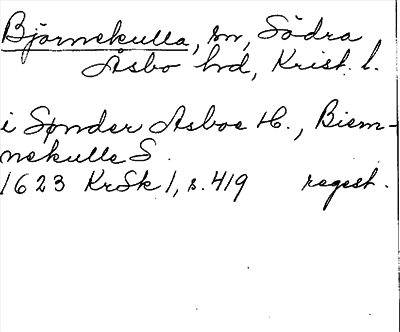 Björnekulla, sn, Södra
Åsbo hd, Krist. l.
i Sønder Asboe H., Biern-
nekulle S.
1623 KrSk 1, s. 419 regest.